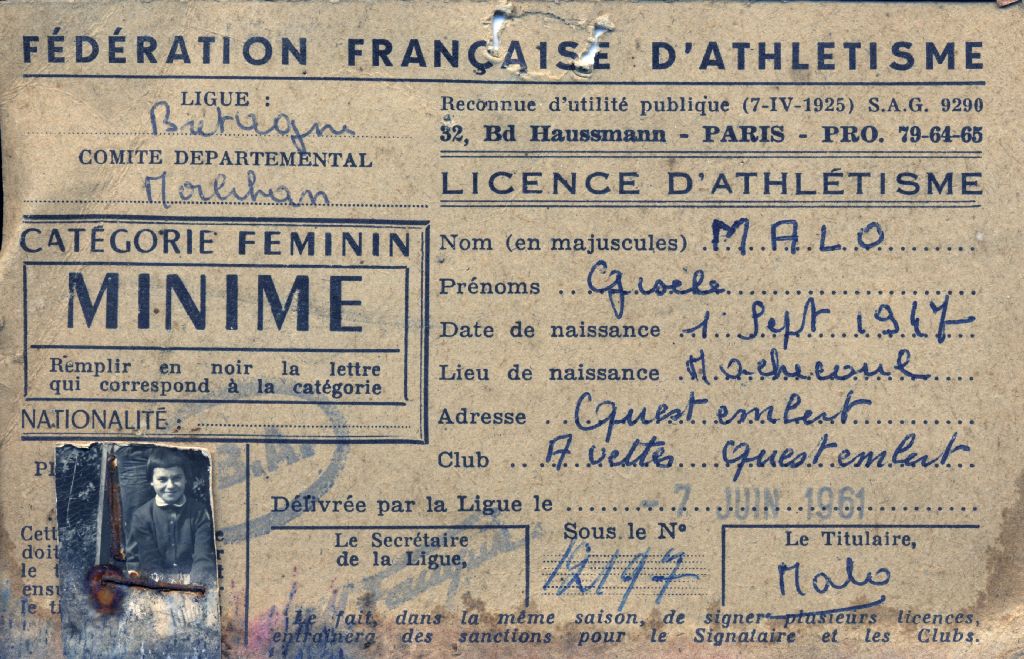 FÉDÉRATION FRANÇAISE D'ATHLETISME
LIGUE :
Bretagne
COMITE DEPARTEMENTAL
Morbihan
Reconnue d'utilité publique (7-IV-1925) S.A.G. 9290
32, Bd Haussmann - PARIS - PRO. 79-64-65
LICENCE D'ATHLÉTISME
CATÉGORIE FEMININ
MINIME
Remplir en noir la lettre
qui correspond à la catégorie
NATIONALITÉ :
Nom (en majuscules) MALO
Prénoms
Date de naissance 1 Sept 1947
Lieu de naissance Machecoul
Adresse Questembert
Club Avettes Questembert
Délivrée par la Ligue le - 7 JUIN 1961
Le Secrétaire
de la Ligue,
Sous le N°
12197
Le Titulaire,
Malo
Le fait, dans la même saison, de signer plusieurs licences,
entraînera des sanctions pour le Signataire et les Clubs.